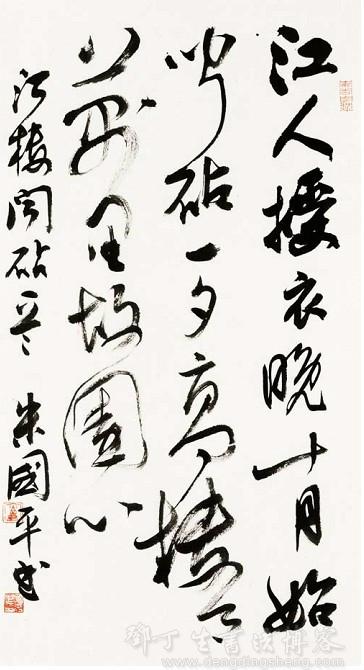 江人授衣晚十月始
聞砧一夕高樓
月萬里故園心
江樓聞砧 朱國平書
鄧丁生書法博客
www.dengdingsheng.com